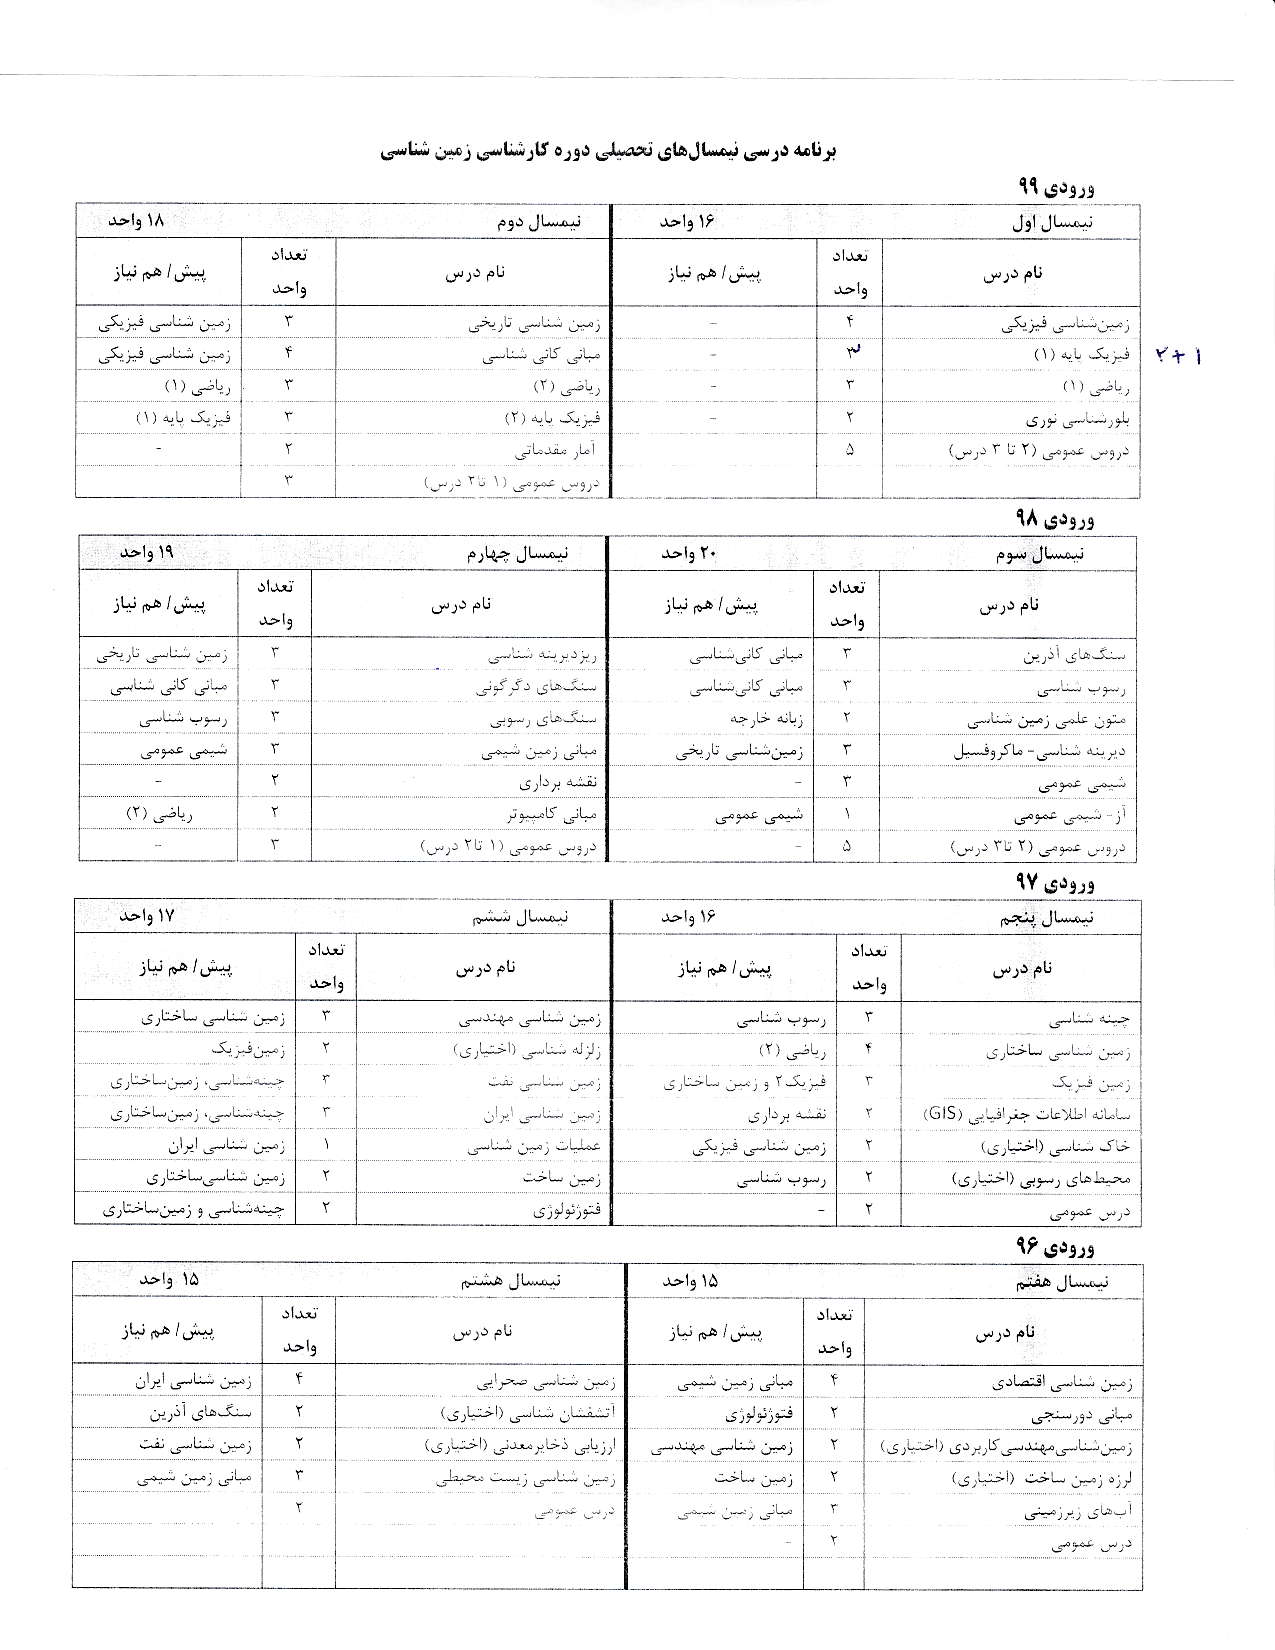 برنامه درسی نیمسال‌های تحصیلی دوره کارشناسی زمین شناسی
ورودی ۹۹
نیمسال اول ۱۶ واحد نیمسال دوم ۱۸ واحد
نام درس تعداد واحد پیش/ هم نیاز نام درس تعداد واحد پیش/ هم نیاز
زمین‌شناسی فیزیکی ۴ - زمین شناسی تاریخی ۳ زمین شناسی فیزیکی
فیزیک پایه (۱) ۳ - مبانی کانی شناسی ۴ زمین شناسی فیزیکی
۲+۱
ریاضی (۱) ۳ - ریاضی (۲) ۳ ریاضی (۱)
بلورشناسی نوری ۲ - فیزیک پایه (۲) ۳ فیزیک پایه (۱)
دروس عمومی (۲ تا ۳ درس) ۵ آمار مقدماتی ۲ -
دروس عمومی (۱ تا۲ درس) ۳
ورودی ۹۸
نیمسال سوم ۲۰ واحد نیمسال چهارم ۱۹ واحد
نام درس تعداد واحد پیش/ هم نیاز نام درس تعداد واحد پیش/ هم نیاز
سنگ‌های آذرین ۳ مبانی کانی‌شناسی ریزدیرینه شناسی ۳ زمین شناسی تاریخی
رسوب شناسی ۳ مبانی کانی‌شناسی سنگ‌های دگرگونی ۳ مبانی کانی شناسی
متون علمی زمین شناسی ۲ زبانه خارجه سنگ‌های رسوبی ۳ رسوب شناسی
دیرینه شناسی- ماکروفسیل ۳ زمین‌شناسی تاریخی مبانی زمین شیمی ۳ شیمی عمومی
شیمی عمومی ۳ - نقشه برداری ۲ -
آز- شیمی عمومی ۱ شیمی عمومی مبانی کامپیوتر ۲ ریاضی (۲)
دروس عمومی (۲ تا۳ درس) ۵ - دروس عمومی (۱ تا۲ درس) ۳ -
ورودی ۹۷
نیمسال پنجم ۱۶ واحد نیمسال ششم ۱۷ واحد
نام درس تعداد واحد پیش/ هم نیاز نام درس تعداد واحد پیش/ هم نیاز
چینه شناسی ۳ رسوب شناسی زمین شناسی مهندسی ۳ زمین شناسی ساختاری
زمین شناسی ساختاری ۴ ریاضی (۲) زلزله شناسی (اختیاری) ۲ زمین‌فیزیک
زمین فیزیک ۳ فیزیک۲ و زمین ساختاری زمین شناسی نفت ۳ چینه‌شناسی، زمین‌ساختاری
سامانه اطلاعات جغرافیایی (GIS) ۲ نقشه برداری زمین شناسی ایران ۳ چینه‌شناسی، زمین‌ساختاری
خاک شناسی (اختیاری) ۲ زمین شناسی فیزیکی عملیات زمین شناسی ۱ زمین شناسی ایران
محیط‌های رسوبی (اختیاری) ۲ رسوب شناسی زمین ساخت ۲ زمین شناسی‌ساختاری
درس عمومی ۲ - فتوژئولوژی ۲ چینه‌شناسی و زمین‌ساختاری
ورودی ۹۶
نیمسال هفتم ۱۵ واحد نیمسال هشتم ۱۵ واحد
نام درس تعداد واحد پیش/ هم نیاز نام درس تعداد واحد پیش/ هم نیاز
زمین شناسی اقتصادی ۴ مبانی زمین شیمی زمین شناسی صحرایی ۴ زمین شناسی ایران
مبانی دورسنجی ۲ فتوژئولوژی آتشفشان شناسی (اختیاری) ۲ سنگ‌های آذرین
زمین‌شناسی‌مهندسی‌کاربردی (اختیاری) ۲ زمین شناسی مهندسی ارزیابی ذخایرمعدنی (اختیاری) ۲ زمین شناسی نفت
لرزه زمین ساخت (اختیاری) ۲ زمین ساخت زمین شناسی زیست محیطی ۳ مبانی زمین شیمی
آب‌های زیرزمینی ۳ مبانی زمین شیمی درس عمومی ۲
درس عمومی ۲ -